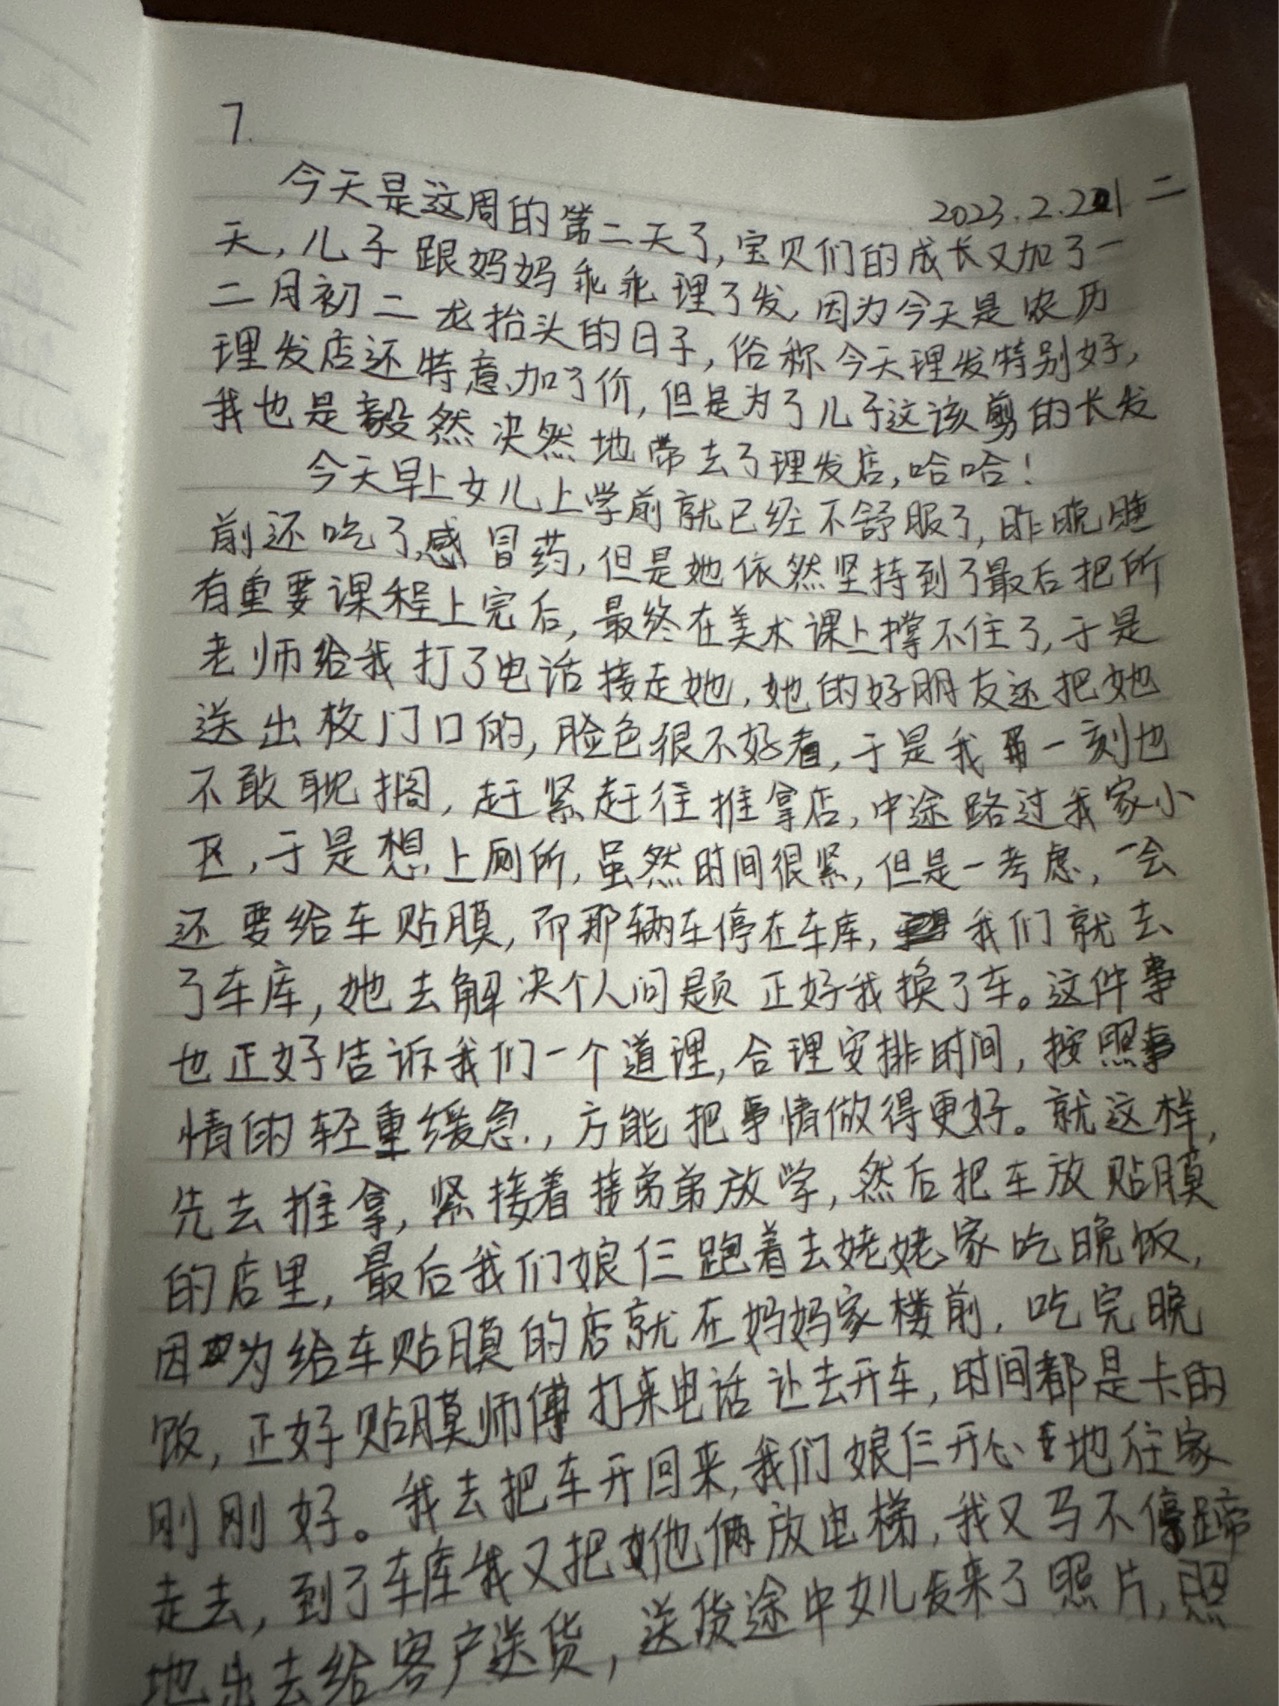 7.
2023.2.21 二
今天是这周的第二天了,宝贝们的成长又加了一
天,儿子跟妈妈乖乖理了发,因为今天是农历
二月初二龙抬头的日子,俗称今天理发特别好,
理发店还特意加了价,但是为了儿子这该剪的长发
我也是毅然决然地带去了理发店,哈哈!
今天早上女儿上学前就已经不舒服了,昨晚睡
前还吃了感冒药,但是她依然坚持到了最后把所
有重要课程上完后,最终在美术课上撑不住了,于是
老师给我打了电话接走她,她的好朋友还把她
送出校门口的,脸色很不好看,于是我一刻也
不敢耽搁,赶紧赶往推拿店,中途路过我家小
区,于是想上厕所,虽然时间很紧,但是一考虑,一会
还要给车贴膜,而那辆车停在车库,我们就去
了车库,她去解决个人问题正好我换了车。这件事
也正好告诉我们一个道理,合理安排时间,按照事
情的轻重缓急,方能把事情做得更好。就这样,
先去推拿,紧接着接弟弟放学,然后把车放贴膜
的店里,最后我们娘仨跑着去姥姥家吃晚饭,
因为给车贴膜的店就在妈妈家楼前,吃完晚
饭,正好贴膜师傅打来电话让去开车,时间都是卡的
刚刚好。我去把车开回来,我们娘仨开心地往家
走去,到了车库我又把他俩放电梯,我又马不停蹄
地出去给客户送货,送货途中女儿发来了照片,照